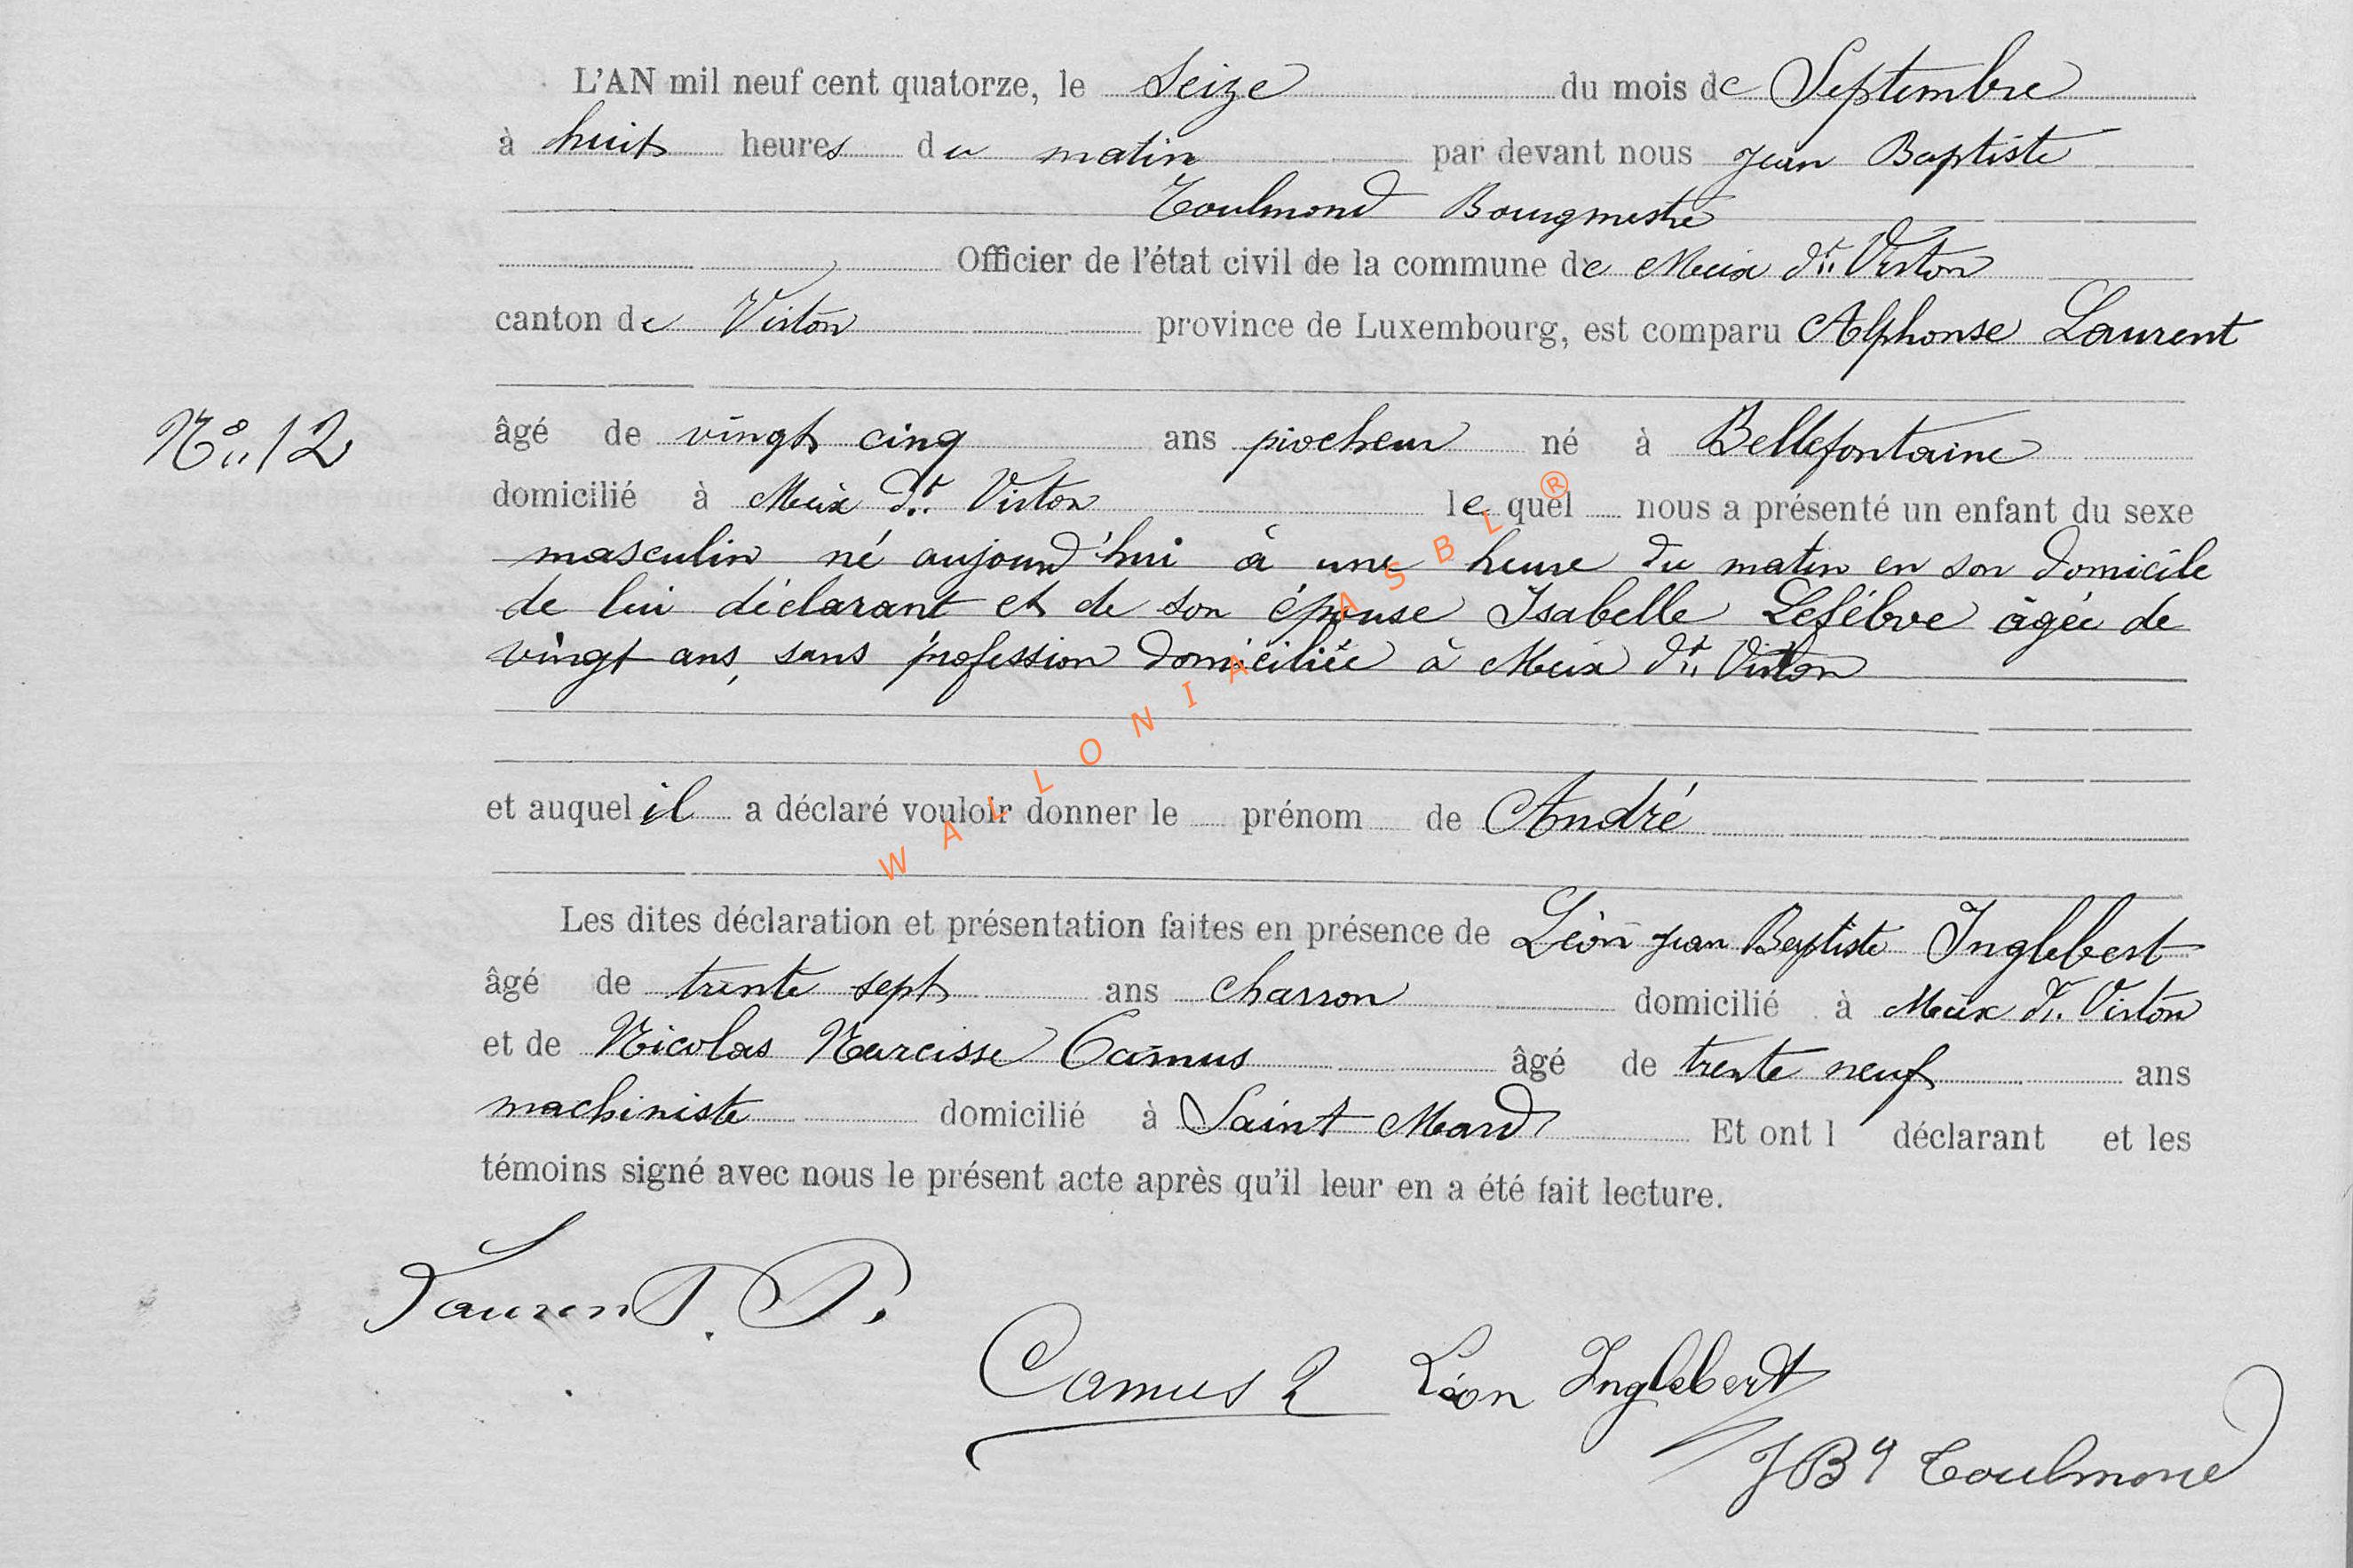 L'AN mil neuf cent quatorze, le Seize du mois de Septembre
à huit heures du matin par devant nous Jean Baptiste
Toulmond Bourgmestre
Officier de l'état civil de la commune de Meix dt. Virton
canton de Virton province de Luxembourg, est comparu Alphonse Laurent
No. 12
âgé de vingt cinq ans piocheur né à Bellefontaine
domicilié à Meix dt. Virton lequel nous a présenté un enfant du sexe
masculin né aujourd'hui à une heure du matin en son domicile
de lui déclarant et de son épouse Isabelle Lefèbve âgée de
vingt ans, sans profession domiciliée à Meix dt. Virton
et auquel il a déclaré vouloir donner le prénom de André
Les dites déclaration et présentation faites en présence de Léon Jean Baptiste Inglebert
âgé de trente sept ans charron domicilié à Meix dt. Virton
et de Nicolas Narcisse Camus âgé de trente neuf ans
machiniste domicilié à Saint Mard Et ont l déclarant et les
témoins signé avec nous le présent acte après qu'il leur en a été fait lecture.
Laurent
Camus Léon Inglebert
JBte Toulmond
WALLONIA ASBL ®